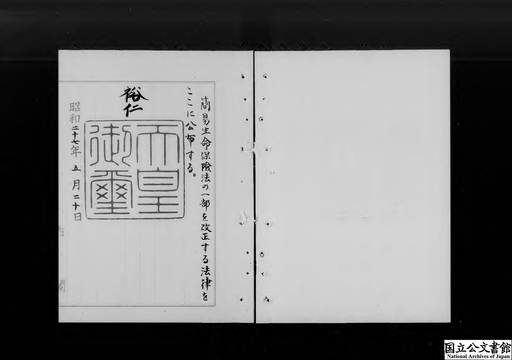 簡易生命保険法の一部を改正する法律を
ここに公布する。
裕仁
天皇
御璽
昭和二十七年五月二十日
国立公文書館
National Archives of Japan